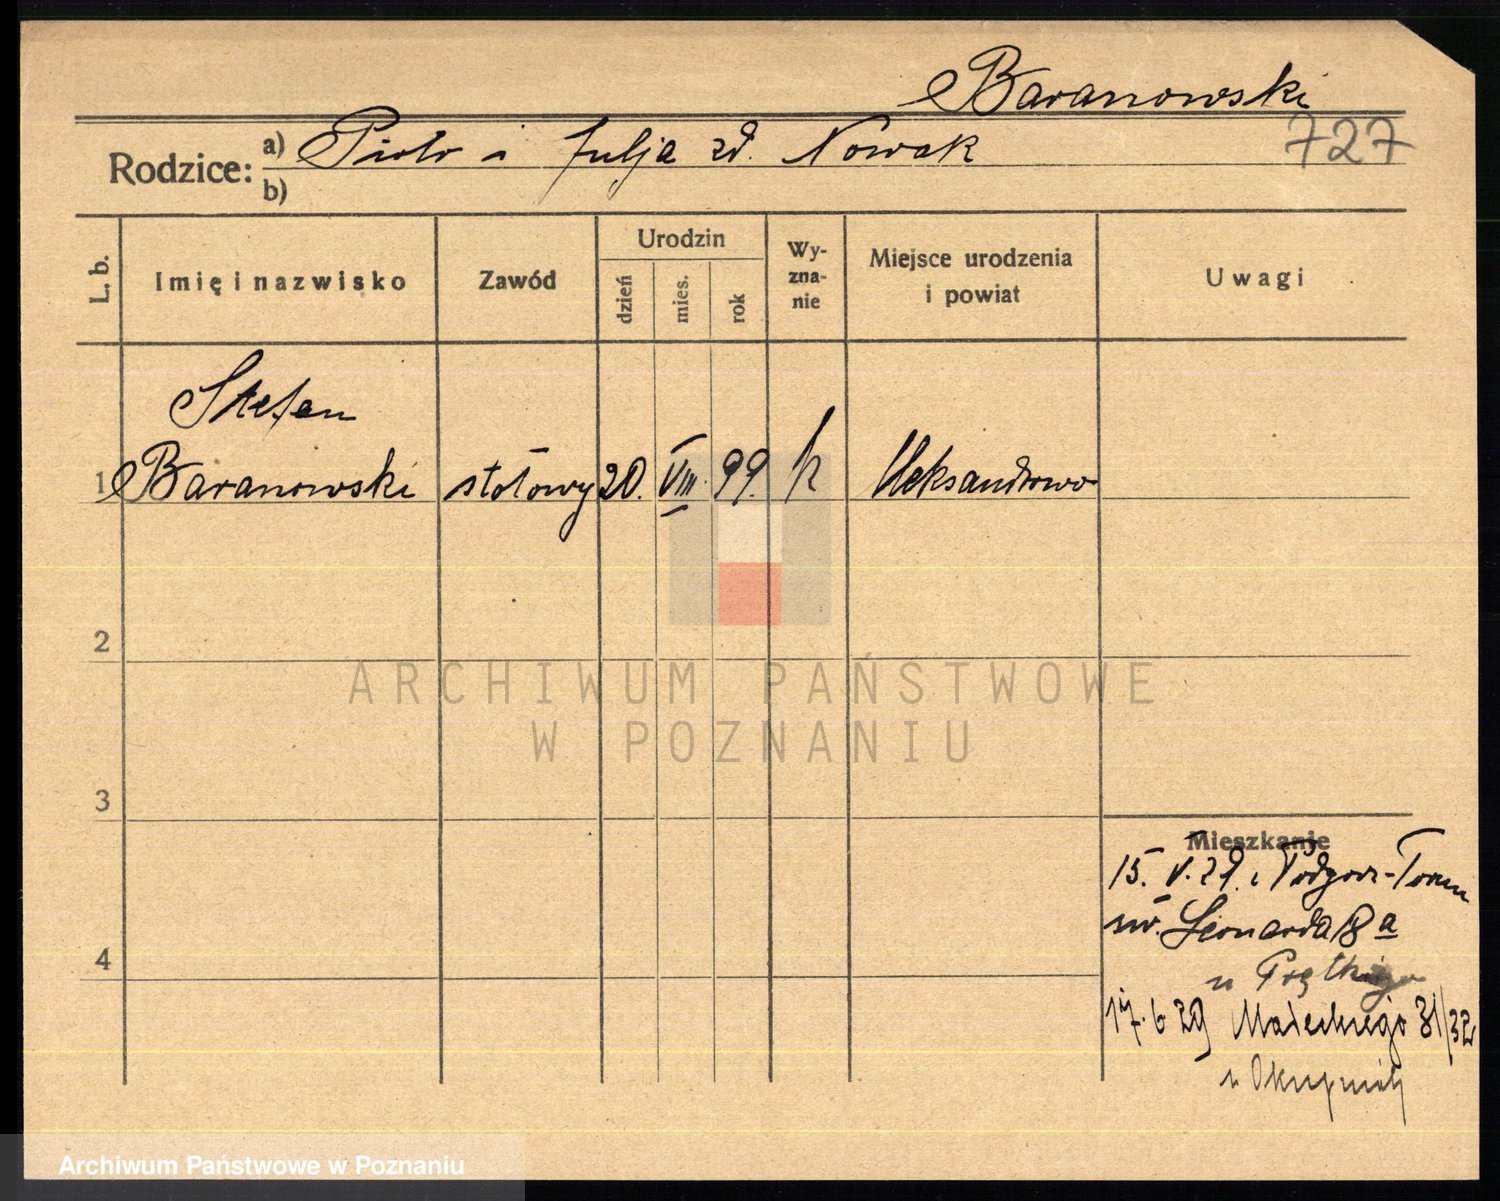 Baranowski
727
Rodzice: a) Piotr i Julja zd. Nowak
b)
L. b.
Imię i nazwisko
Zawód
Urodzin
dzień
mies.
rok
Wy-
zna-
nie
Miejsce urodzenia
i powiat
Uwagi
Stefan
1 Baranowski stołowy 20. VIII. 99. k Aleksandrowo
2
3
4
Mieszkanie
15. V. 29. z Podgorz-Torun
św. Leonarda 8 a
u
17. 6 29 Małeckiego 31/32
u
ARCHIWUM PAŃSTWOWE
W POZNANIU
Archiwum Państwowe w Poznaniu